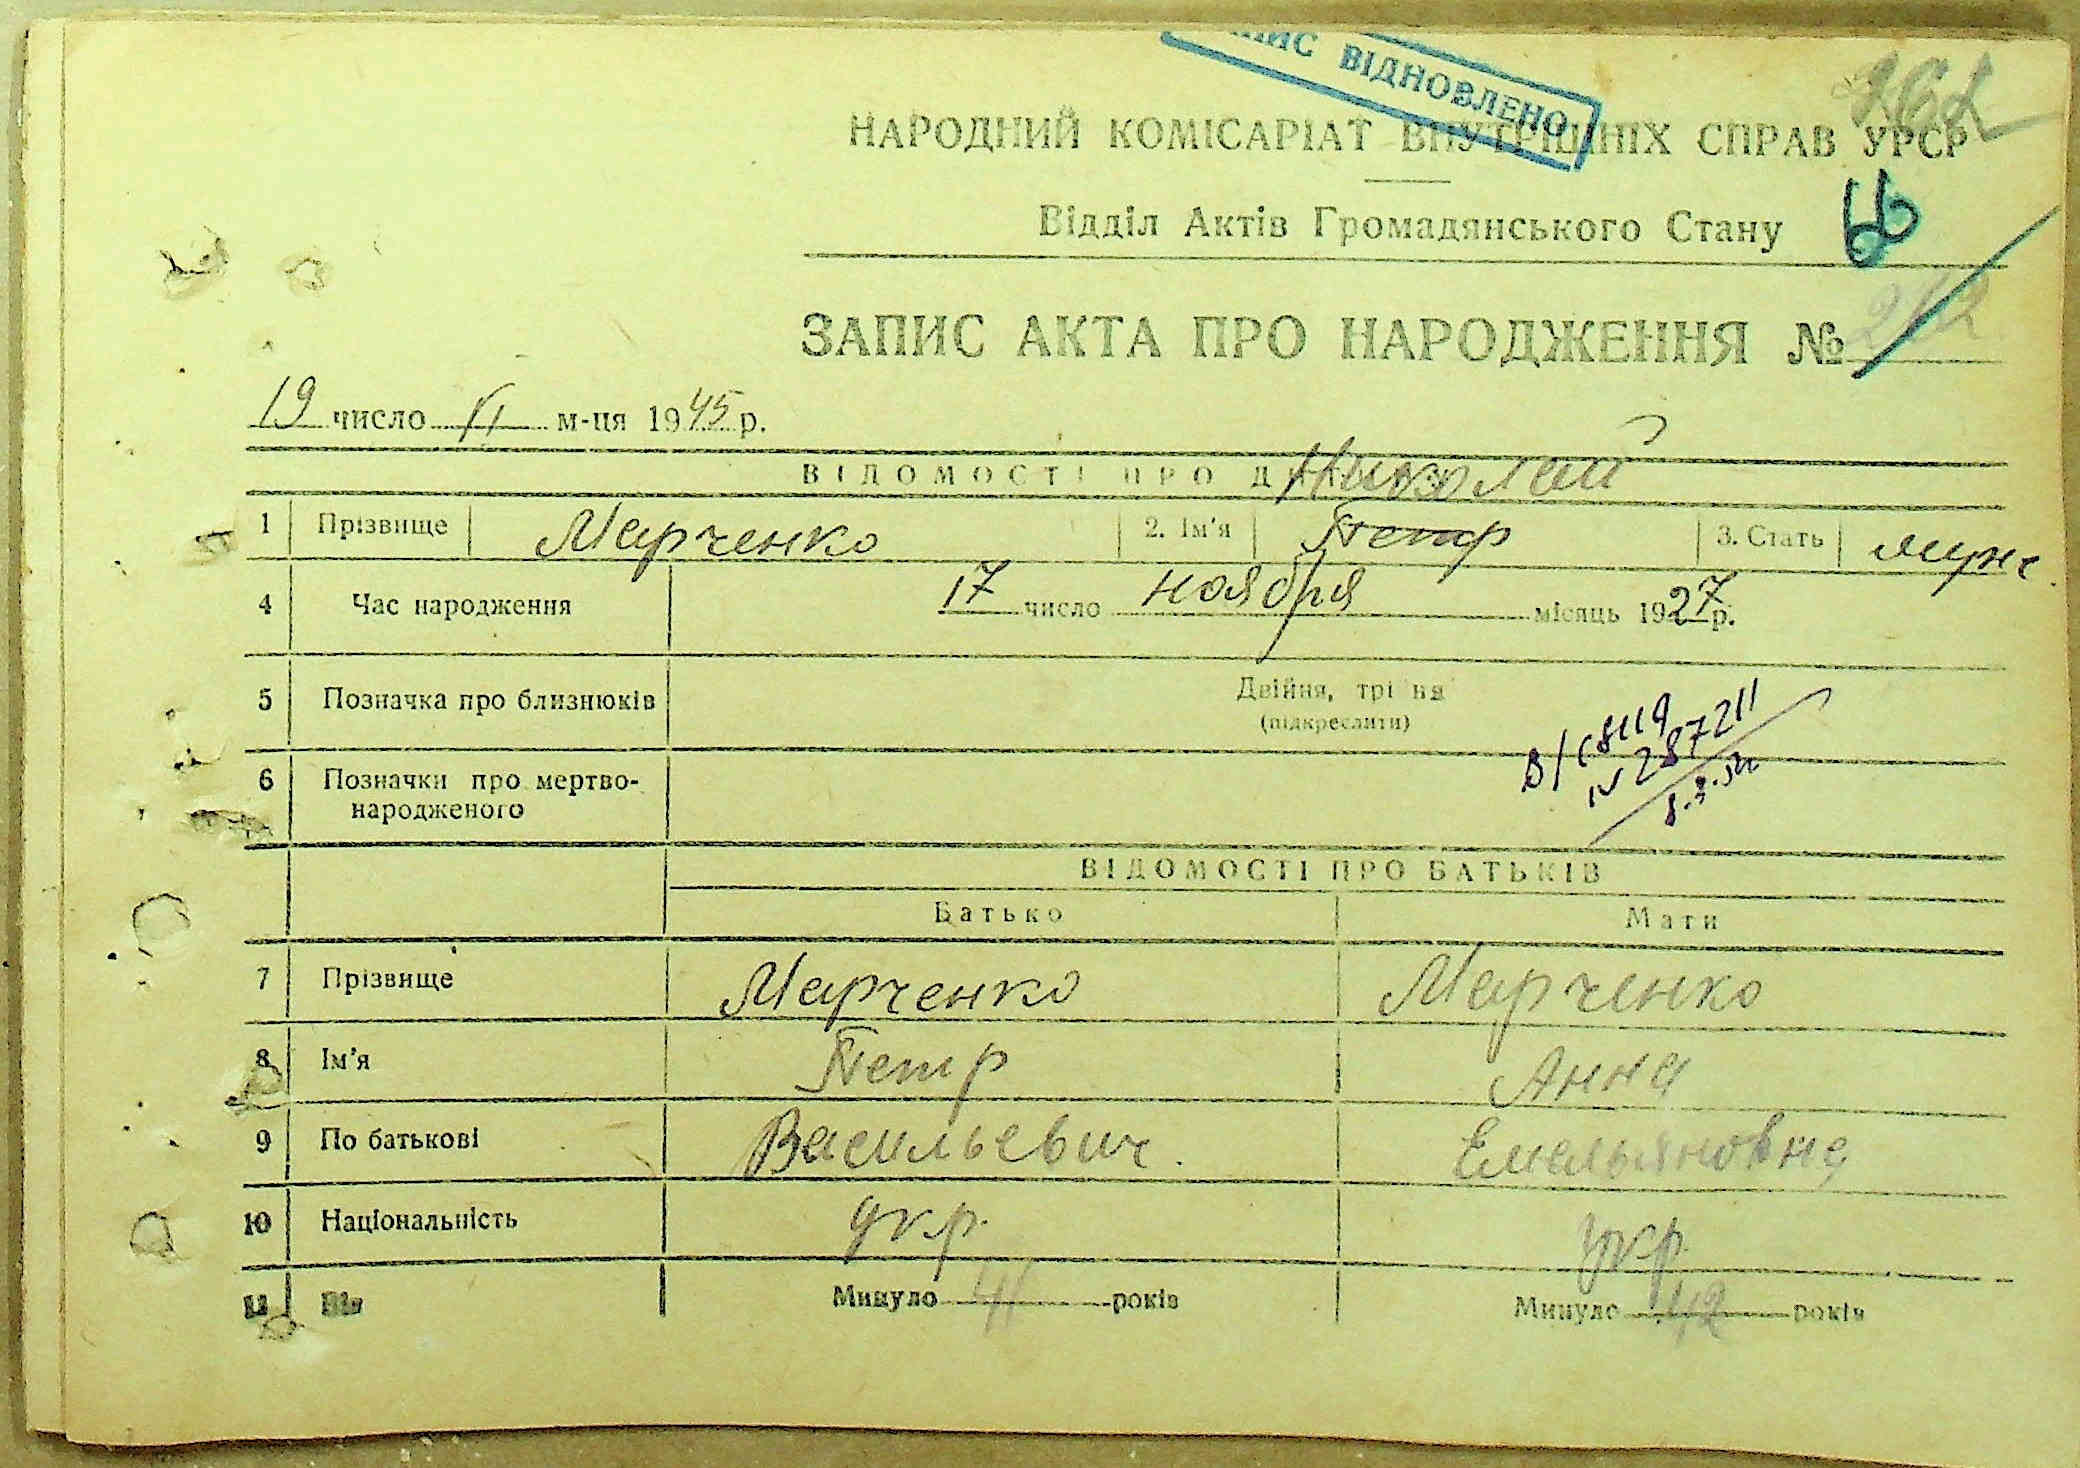 ВІДНОВЛЕНО
262
НАРОДНИЙ КОМІСАРІАТ ВНУТРІШНІХ СПРАВ УРСР
Відділ Актів Громадянського Стану
66
ЗАПИС АКТА ПРО НАРОДЖЕННЯ № 262
19 число VI м-ця 1945 р.
ВІДОМОСТІ ПРО
Николай
1 Прізвище Марченко 2. Ім'я Петр 3. Стать муж
4 Час народження 17 число ноября місяць 1927 р.
5 Позначка про близнюків Двійня, трійня
(підкреслити)
6 Позначки про мертво-
народженого
ВІДОМОСТІ ПРО БАТЬКІВ
Батько Мати
7 Прізвище Марченко Марченко
8 Ім'я Петр Анна
9 По батькові Васильевич Емельяновна
10 Національність укр. укр.
11 Вік Минуло 41 років Минуло 42 років